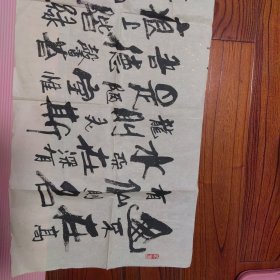 山不在高
有仙則名
水不在深有
龍則灵斯
是陋室惟
吾德馨苔
痕上階綠